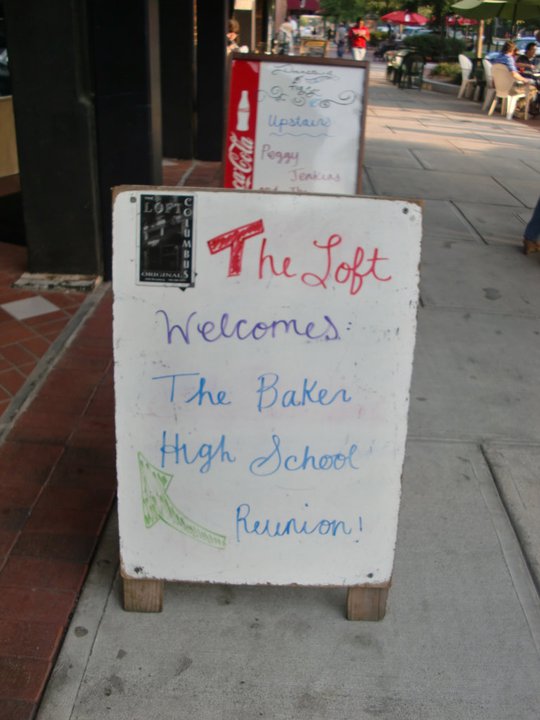 THE
LOFT
COLUMBUS
ORIGINALS
The Loft
Welcomes:
The Baker
High School
Reunion!
Coca-Cola
Upstairs
Peggy
Jenkins
and The